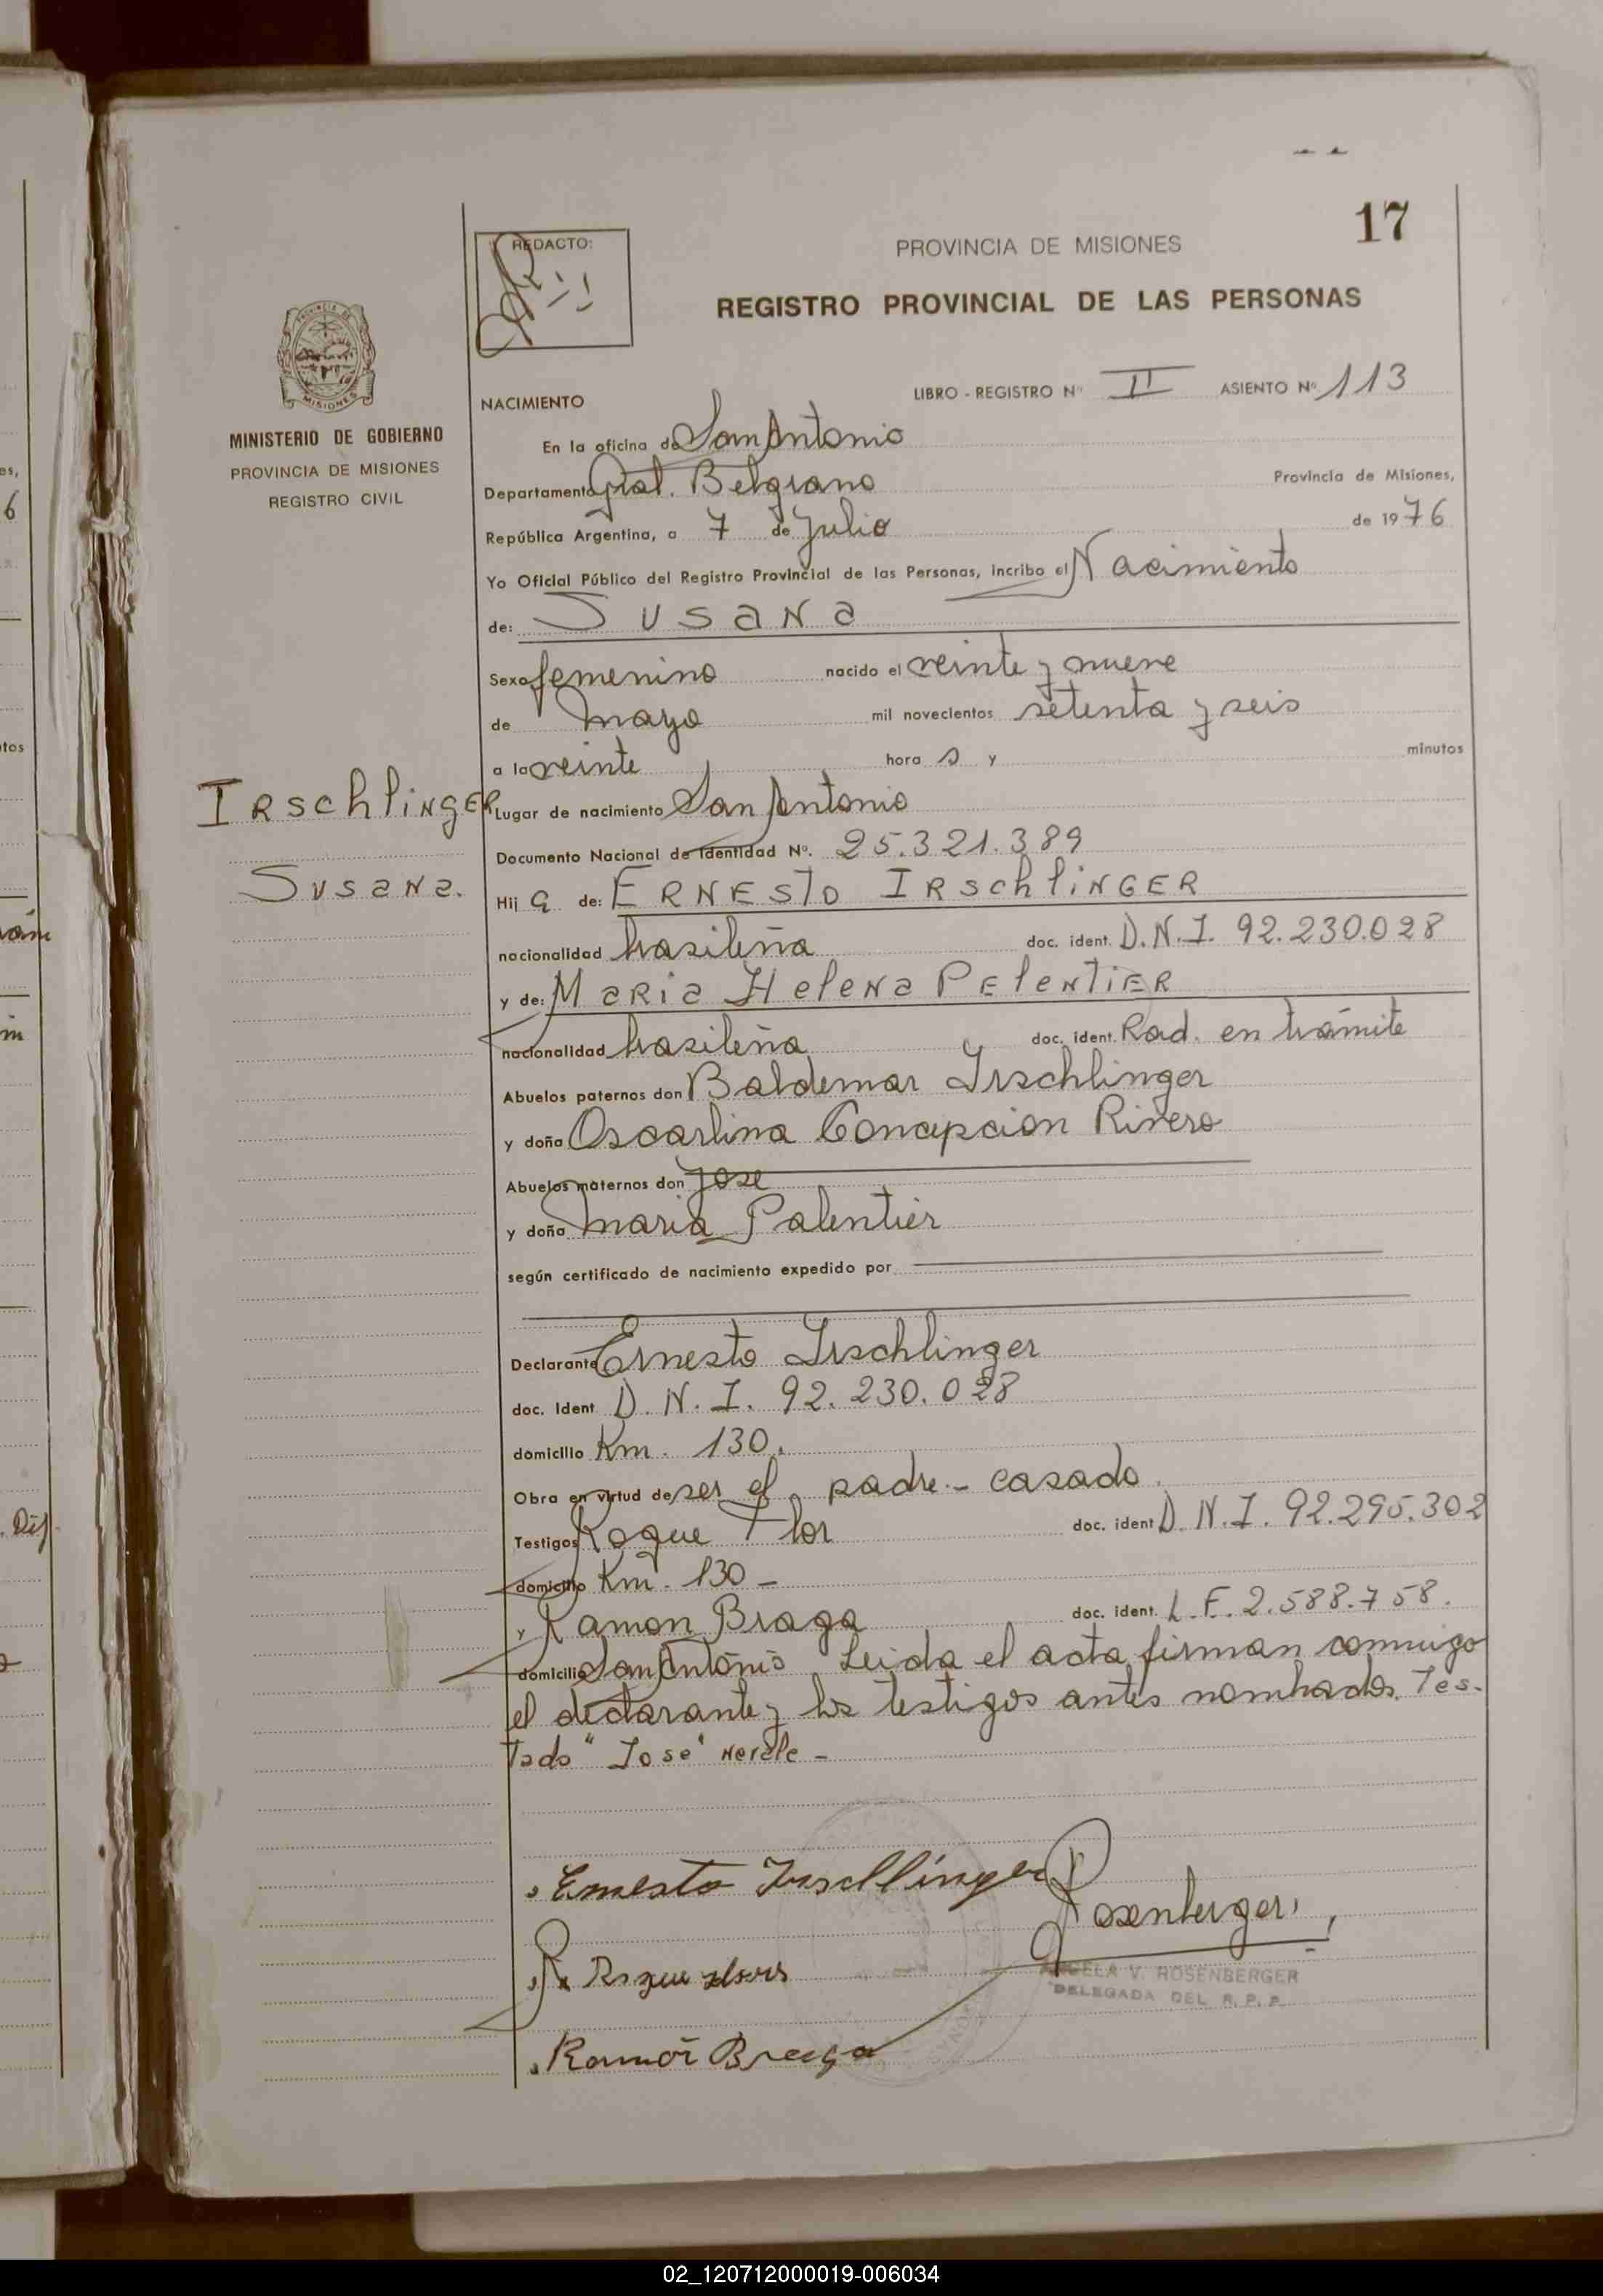 17
REDACTO:
PROVINCIA DE MISIONES
REGISTRO PROVINCIAL DE LAS PERSONAS
PROVINCIA DE
MISIONES
MINISTERIO DE GOBIERNO
PROVINCIA DE MISIONES
REGISTRO CIVIL
NACIMIENTO
LIBRO - REGISTRO Nº II ASIENTO Nº 113
En la oficina de San Antonio
Departamento Gral. Belgrano Provincia de Misiones,
República Argentina, a 7 de Julio de 1976
Yo Oficial Público del Registro Provincial de las Personas, incribo el Nacimiento
de: Susana
Sexo femenino nacido el veinte y nueve
de mayo mil novecientos setenta y seis
a la veinte hora s y minutos
Irschlinger
Susana.
Lugar de nacimiento San Antonio
Documento Nacional de Identidad Nº. 25.321.389
Hij a de: Ernesto Irschlinger
nacionalidad brasileña doc. ident. D.N.I. 92.230.028
y de: Maria Helena Pelentier
nacionalidad brasileña doc. ident. Rad. en trámite
Abuelos paternos don Baldemar Irschlinger
y doña Oscarlina Concepcion Rivero
Abuelos maternos don Jose
y doña Maria Palentier
según certificado de nacimiento expedido por
Declarante Ernesto Irschlinger
doc. Ident D.N.I. 92.230.028
domicilio Km. 130.
Obra en virtud de ser el padre - casado.
Testigos Roque Flor doc. ident D.N.I. 92.295.302
domicilio Km. 130 -
y Ramon Braga doc. ident. L.E. 2.588.758.
domicilio San Antonio Leida el acta firman conmigo
el declarante y los testigos antes nombrados. Tes-
tado "Jose" Nevale -
Ernesto Irschlinger
Rosenberger
Roque
ANGELA V. ROSENBERGER
DELEGADA DEL R.P.P.
Ramon Braga
02_120712000019-006034